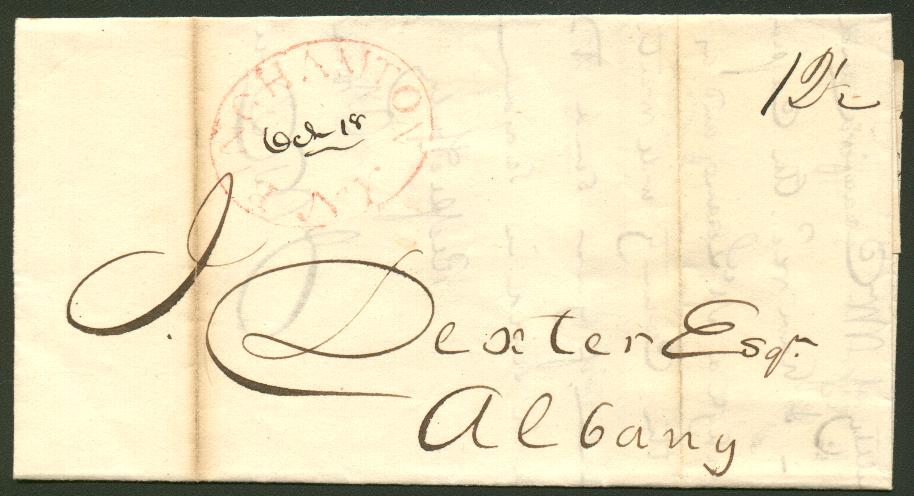 BINGHAMTON
N.Y.
Oct 18
12½
J. Dexter Esqr.
Albany